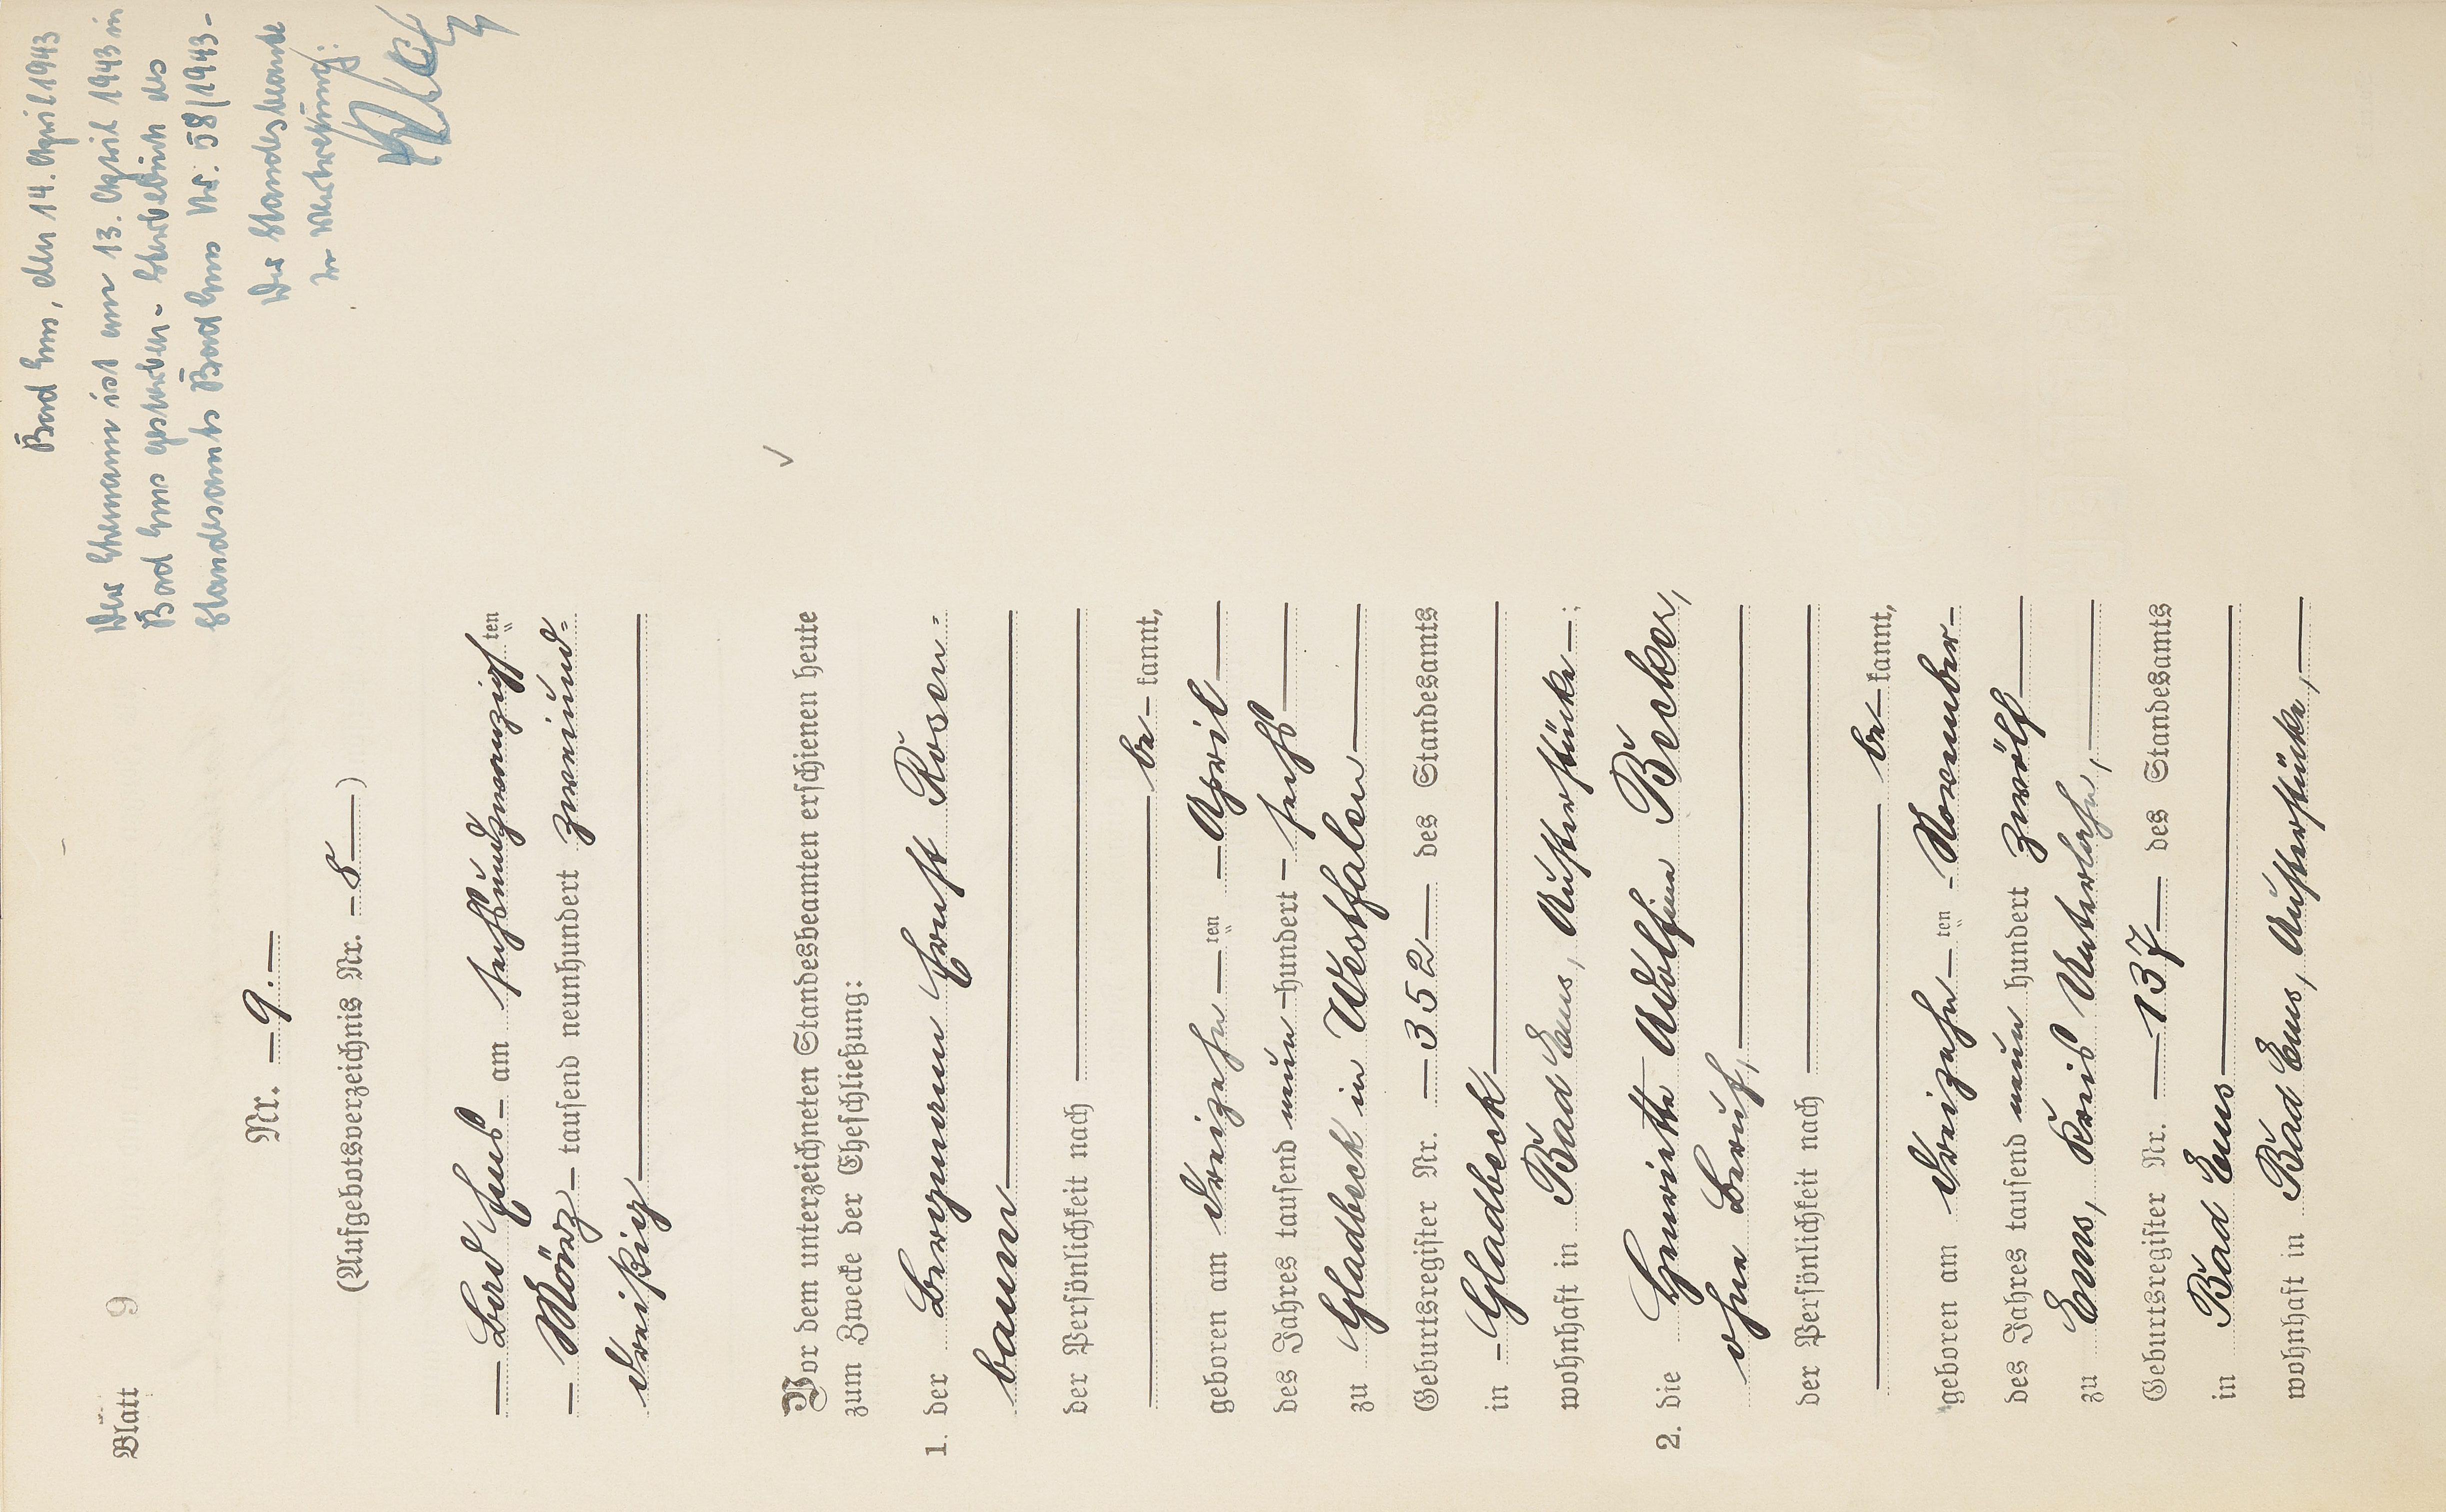 Blatt 9
Bad Ems, den 14. April 1943
Der Ehemann ist am 13. April 1943 in
Bad Ems gestorben. Sterbebuch des
Standesamts Bad Ems Nr. 58/1943-
Der Standesbeamte
In Vertretung:
Nr. — 9. —
(Aufgebotsverzeichnis Nr. — 8 —)
— Bad Ems — am sechsundzwanzigsten
— März — tausend neunhundert zweiund=
dreißig —
Vor dem unterzeichneten Standesbeamten erschienen heute
zum Zwecke der Eheschließung:
1. der Bergmann Ernst Rosen=
baum —
der Persönlichkeit nach —
— be — kannt,
geboren am dreizehn — ten — April —
des Jahres tausend neun — hundert — sechs —
zu Gladbeck in Westfalen —
Geburtsregister Nr. — 352 — des Standesamts
in — Gladbeck —
wohnhaft in Bad Ems, —;
2. die Henriette Adolfine Becker,
ohne Beruf, —
der Persönlichkeit nach —
— be — kannt,
geboren am dreizehn — ten — November —
des Jahres tausend neun hundert zwölf —
zu Ems, Kreis Unterlahn, —
Geburtsregister Nr. — 137 — des Standesamts
in Bad Ems —
wohnhaft in Bad Ems, —